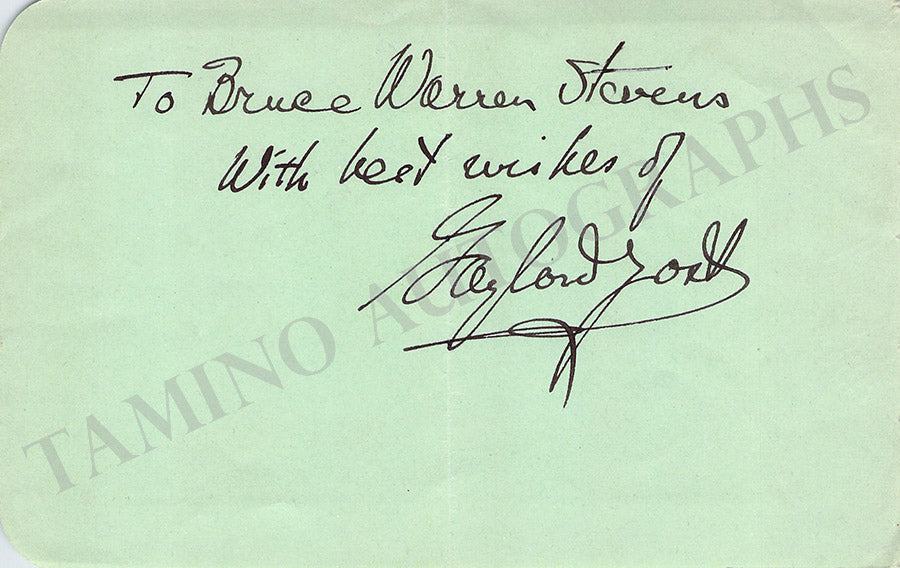 To Bruce Warren Stevens
With best wishes of
Gaylord Yost
TAMINO AUTOGRAPHS